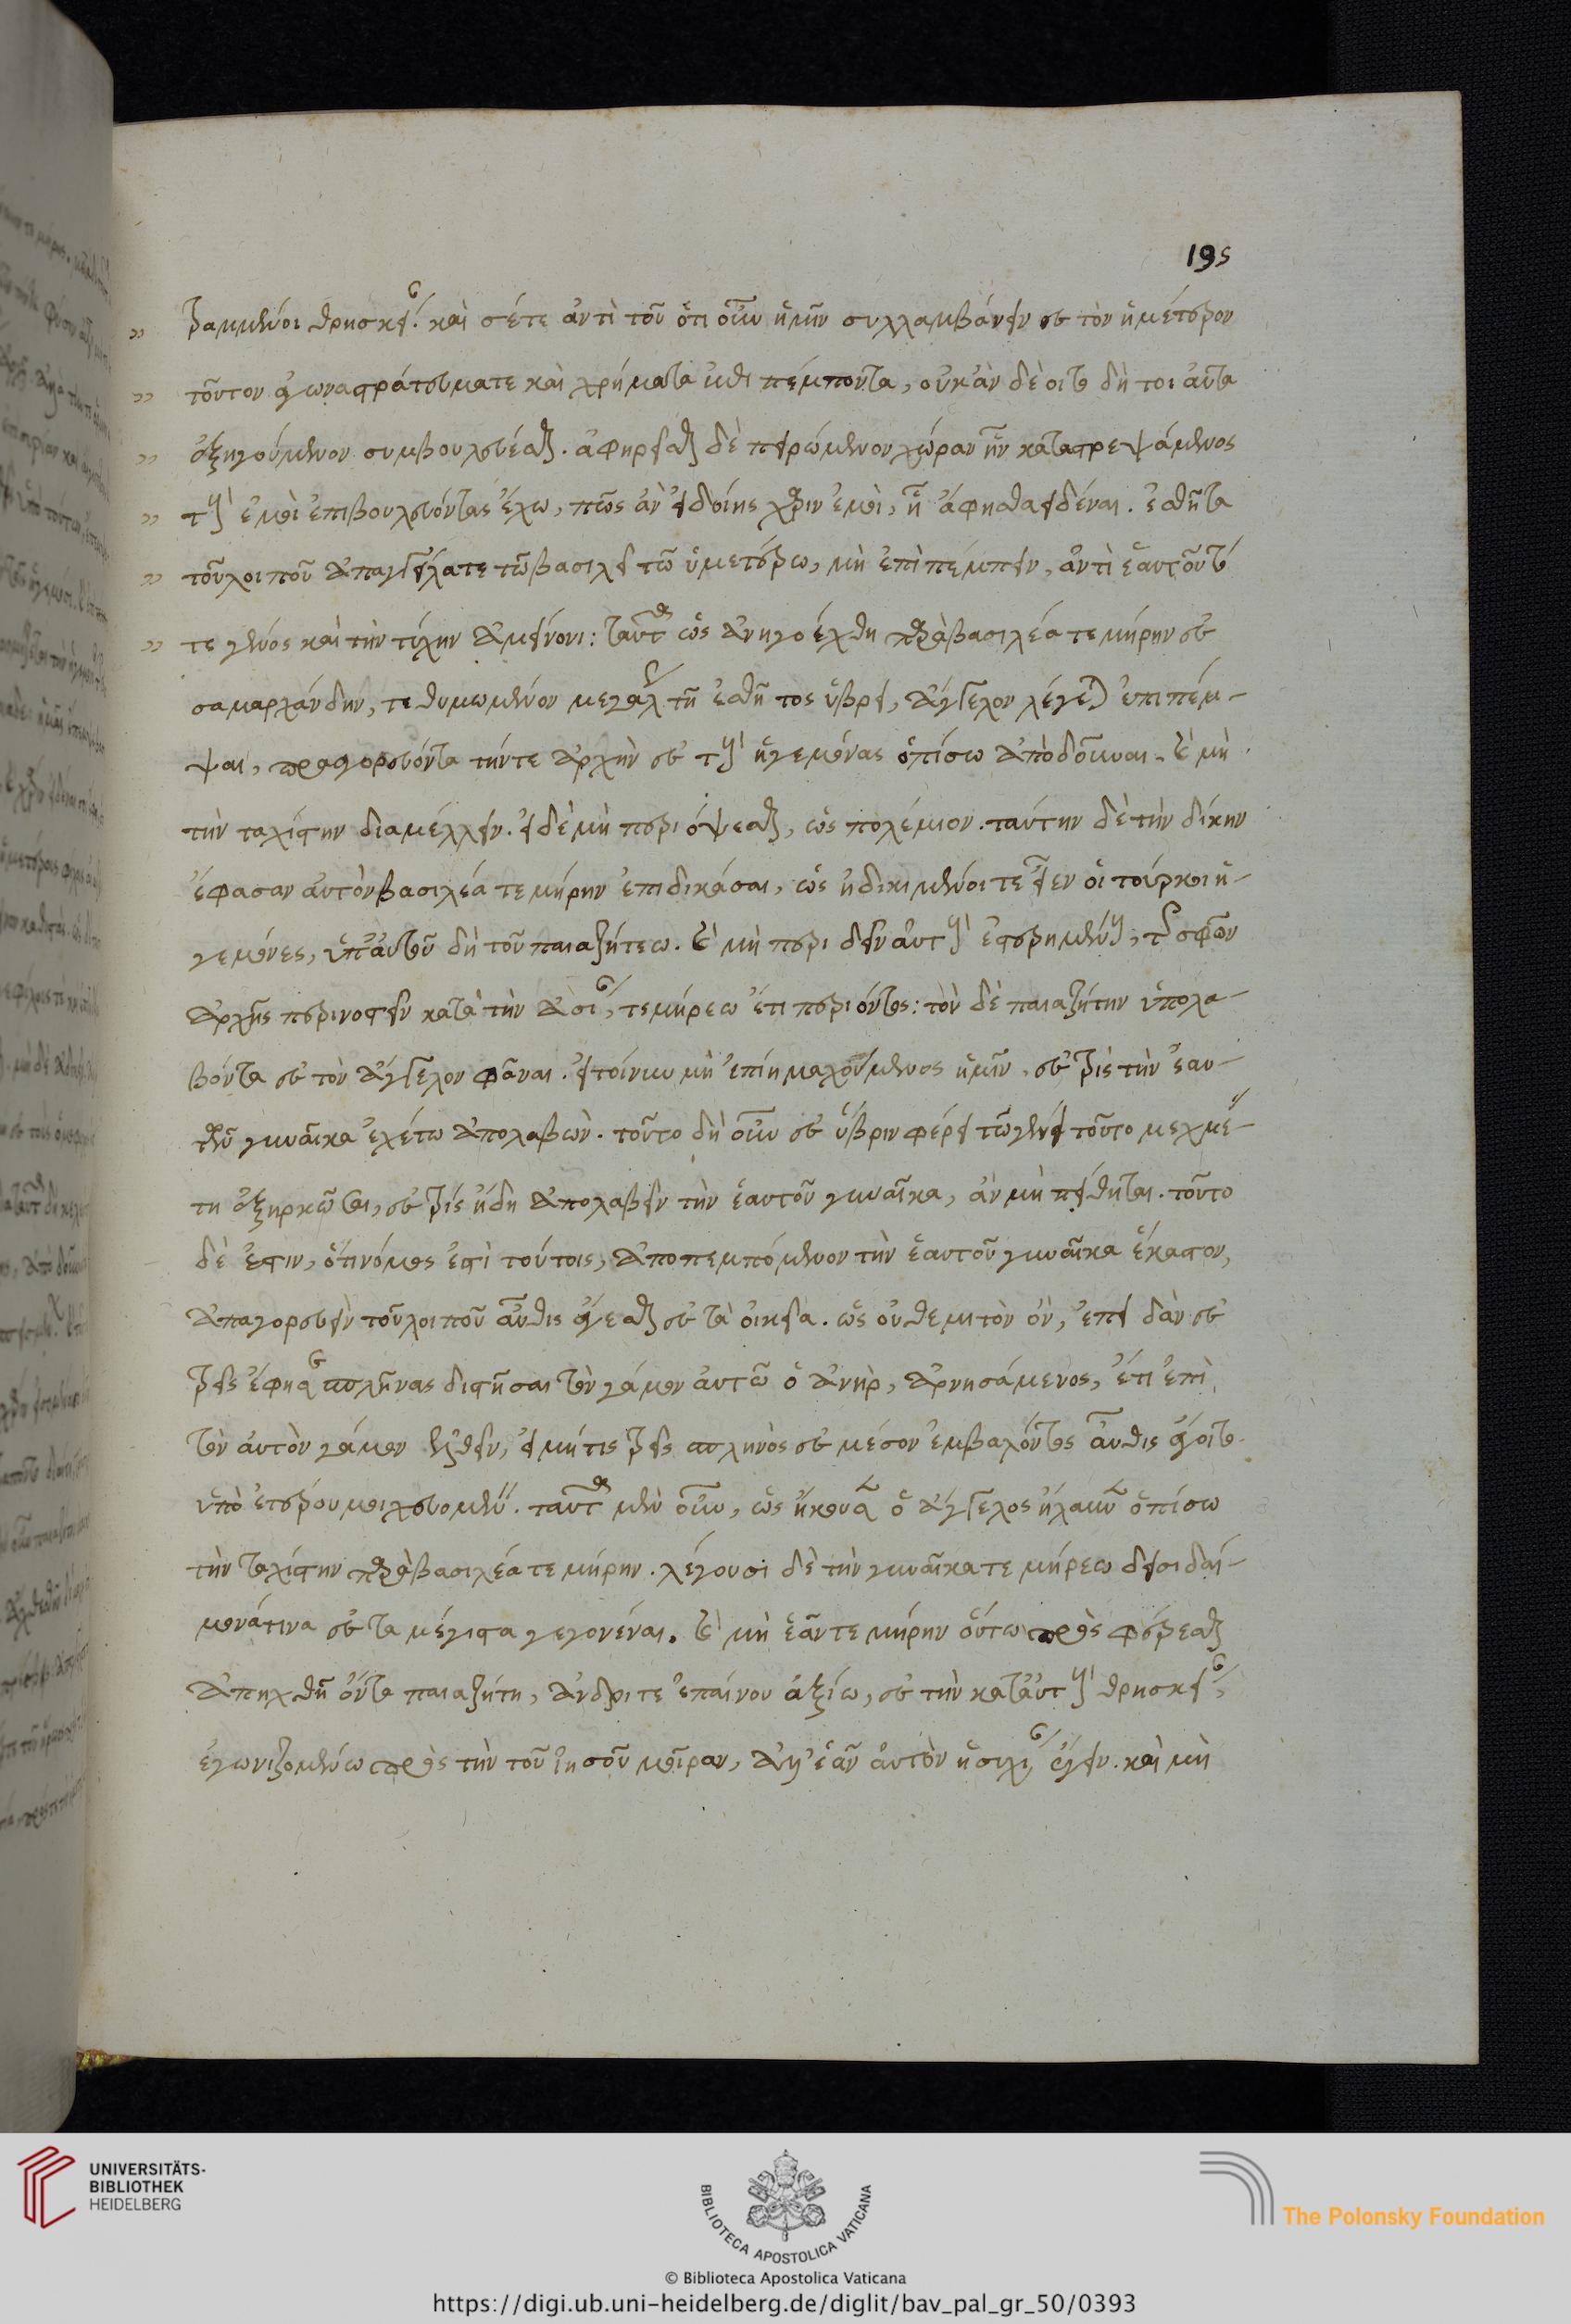 195
ταμμένοι θρησκείας. καὶ σέτε ἀντὶ τοῦ ὅτι οὖν ἡμῖν συλλαμβάνειν ἐς τὸν ἡμέτερον
τοῦτον ἀγῶνα στράτευμά τε καὶ χρήματα πέμποντα, οὐκ ἂν δέοιτο δή τοι αὐτὰ
ἐξηγούμενον συμβουλεύεσθαι. ἀφηρεῖσθαι δὲ πειρώμενον χώραν ἣν καταστρεψάμενος
τοὺς ἐμοὶ ἐπιβουλεύοντας ἔχω, πῶς ἂν εἰδοίης χάριν ἐμοὶ, ἐσθῆτα
τοῦ λοιποῦ ἀπαγγείλατε τῷ βασιλεῖ τῷ ὑμετέρῳ, μὴ ἐπιπέμπειν, ἀντὶ ἑαυτοῦ τό
τε γένος καὶ τὴν τύχην ἀμείνονι: ταῦτα ὡς ἀνηγοέχθη παρὰ βασιλέα τεμήρην ἐς
σαμαρχάνδην, τεθυμωμένον μεγάλως τῇ ἐσθῆτος ὕβρει, ἄγγελον λέγεται ἐπιπέμ-
ψαι, προαγορεύοντα τήν τε ἀρχὴν ἐς τοὺς ἡγεμόνας ὀπίσω ἀποδοῦναι. καὶ μὴ
τὴν ταχίστην διαμέλλειν. εἰ δὲ μὴ περιόψεσθαι, ὡς πολέμιον. ταύτην δὲ τὴν δίκην
ἔφασαν αὐτὸν βασιλέα τεμήρην ἐπιδικάσαι, ὡς ἠδικημένοι τε εἶεν οἱ τούρκοι ἡ-
γεμόνες, ὑπ' αὐτοῦ δὴ τοῦ παιαζήτεω. καὶ μὴ περιιδεῖν αὐτοὺς ἐστερημένους, τῆς σφῶν
ἀρχῆς περινοστεῖν κατὰ τὴν ἀσίαν, τεμήρεω ἔτι περιόντος: τὸν δὲ παιαζήτην ὑπολα-
βόντα ἐς τὸν ἄγγελον φᾶναι. εἰ τοίνυν μὴ ἐπίῃ μαχούμενος ἡμῖν, ἐς τρὶς τὴν ἑαυ-
τοῦ γυναῖκα ἐχέτω ἀπολαβών. τοῦτο δὴ οὖν ἐς ὕβριν φέρει τῷ γένει τοῦτο μεχμέ-
τη ἐξηρκῶσθαι, ἐς τρὶς ἤδη ἀπολαβεῖν τὴν ἑαυτοῦ γυναῖκα, ἂν μὴ πείθηται. τοῦτο
δὲ ἐστιν, ὅτι νόμος ἐστὶ τούτοις, ἀποπεμπόμενον τὴν ἑαυτοῦ γυναῖκα ἕκαστον,
ἀπαγορεύειν τοῦ λοιποῦ αὖθις ἄγεσθαι ἐς τὰ οἰκεῖα. ὡς οὐ θεμιτὸν ὄν, ἐπειδὰν ἐς
τρεῖς ἔφησε σπλῆνας διστῆσαι τὸν γάμον αὐτῷ ὁ ἀνὴρ, ἀρνησάμενος, ἔτι ἐπὶ
τὸν αὐτὸν γάμον ἐλθεῖν, εἰ μήτις τρεῖς σπληνὸς ἐς μέσον ἐμβαλόντος αὖθις ἄγοιτο
ὑπὸ ἑτέρου μοιχευομένην. ταῦτα μὲν οὖν, ὡς ἤκουσε ὁ ἄγγελος ἤλαυνεν ὀπίσω
τὴν ταχίστην παρὰ βασιλέα τεμήρην. λέγουσι δὲ τὴν γυναῖκα τεμήρεω δεισιδαί-
μονά τινα ἐς τὰ μέγιστα γεγονέναι. καὶ μὴ ἐᾶν τεμήρην οὕτω πρὸς φέρεσθαι
ἀπηχθῆ ὄντα παιαζήτη, ἀνδρί τε ἐπαίνου ἀξίω, ἐς τὴν κατ' αὐτοὺς θρησκείαν,
ἀγωνιζομένω πρὸς τὴν τοῦ ἰησοῦ μοῖραν, ἀλλ' ἐᾶν αὐτὸν ἡσυχίαν ἄγειν. καὶ μὴ
UNIVERSITÄTS-
BIBLIOTHEK
HEIDELBERG
BIBLIOTECA APOSTOLICA VATICANA
The Polonsky Foundation
© Biblioteca Apostolica Vaticana
https://digi.ub.uni-heidelberg.de/diglit/bav_pal_gr_50/0393